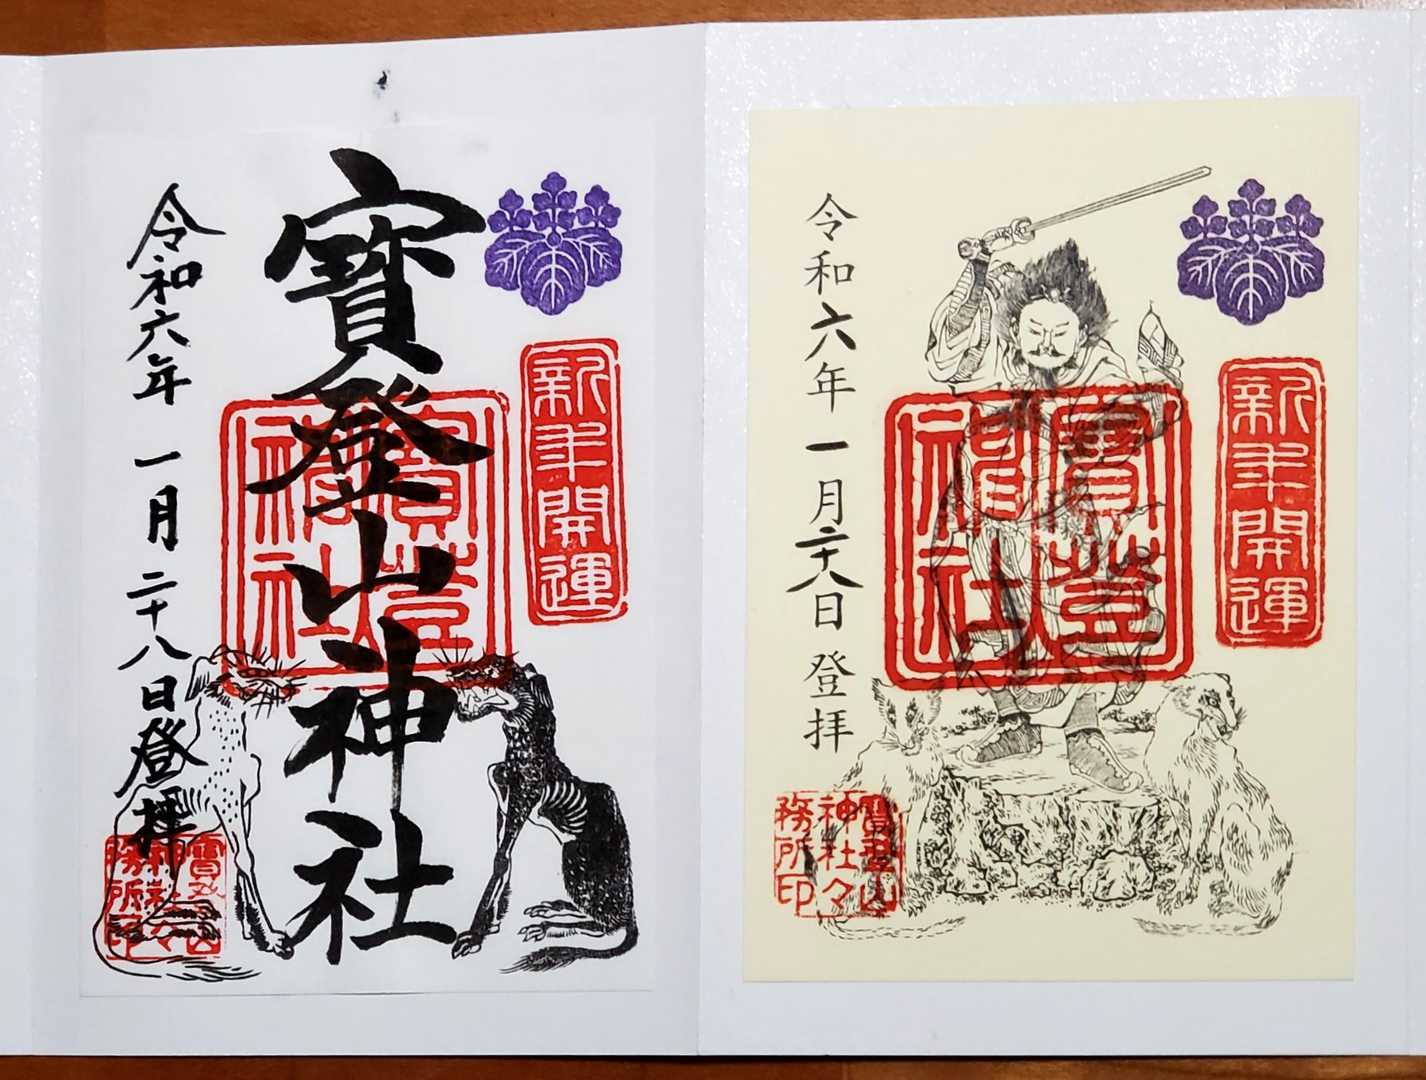 新年開運
寶登山神社
寶登
神社
令和六年 一月二十八日登拝
寶登山
神社々
務所印
新年開運
寶登
神社
令和六年一月二十八日登拝
寶登山
神社々
務所印